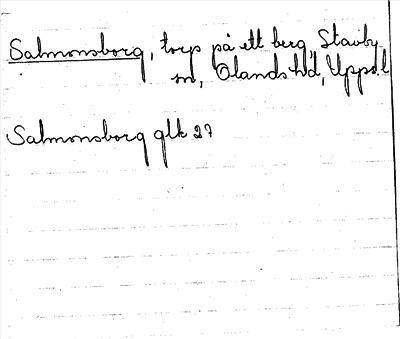 Salmonsborg, torp på ett berg, Stavby
sn, Olands hd, Upps.l
Salmonsborg glk 27